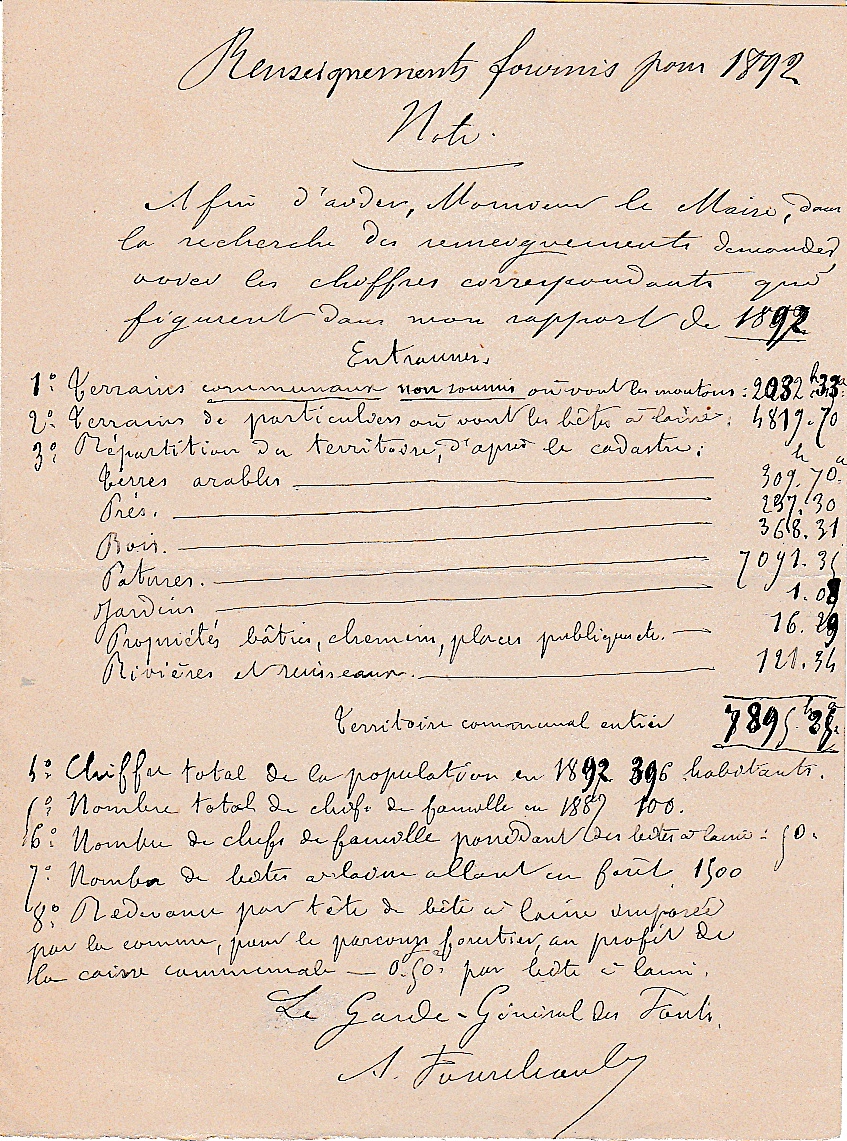 Renseignements fournis pour 1892
Note.
Afin d'aider, Monsieur le Maire, dans
la recherche des renseignements demandés,
voici les chiffres correspondants qui
figurent dans mon rapport de 1892
Entraunes.
1º: Terrains communaux non soumis où vont les moutons: 2032 h 33 a
2º: Terrains de particuliers où vont les bêtes à laine: 4819.70
3º: Répartition du territoire, d'après le cadastre:
h a
Terres arables 309.70
Prés. 297.30
Bois. 368.31
Patures. 7091.35
Jardins 1.08
Propriétés bâties, chemins, places publiques etc. 16.29
Rivières et ruisseaux. 121.34
Territoire communal entier 7895 h 35 a
4º: Chiffre total de la population en 1892 396 habitants.
5º: Nombre total de chefs de famille en 1887 100.
6º: Nombre de chefs de famille possédant des bêtes à laine: 50.
7º: Nombre de bêtes à laine allant en forêt 1500
8º: Redevance par tête de bête à laine imposée
par la commune, pour le parcours forestier, au profit de
la caisse communale — 0.50 par bête à laine.
Le Garde-Général des Forêts,
A.